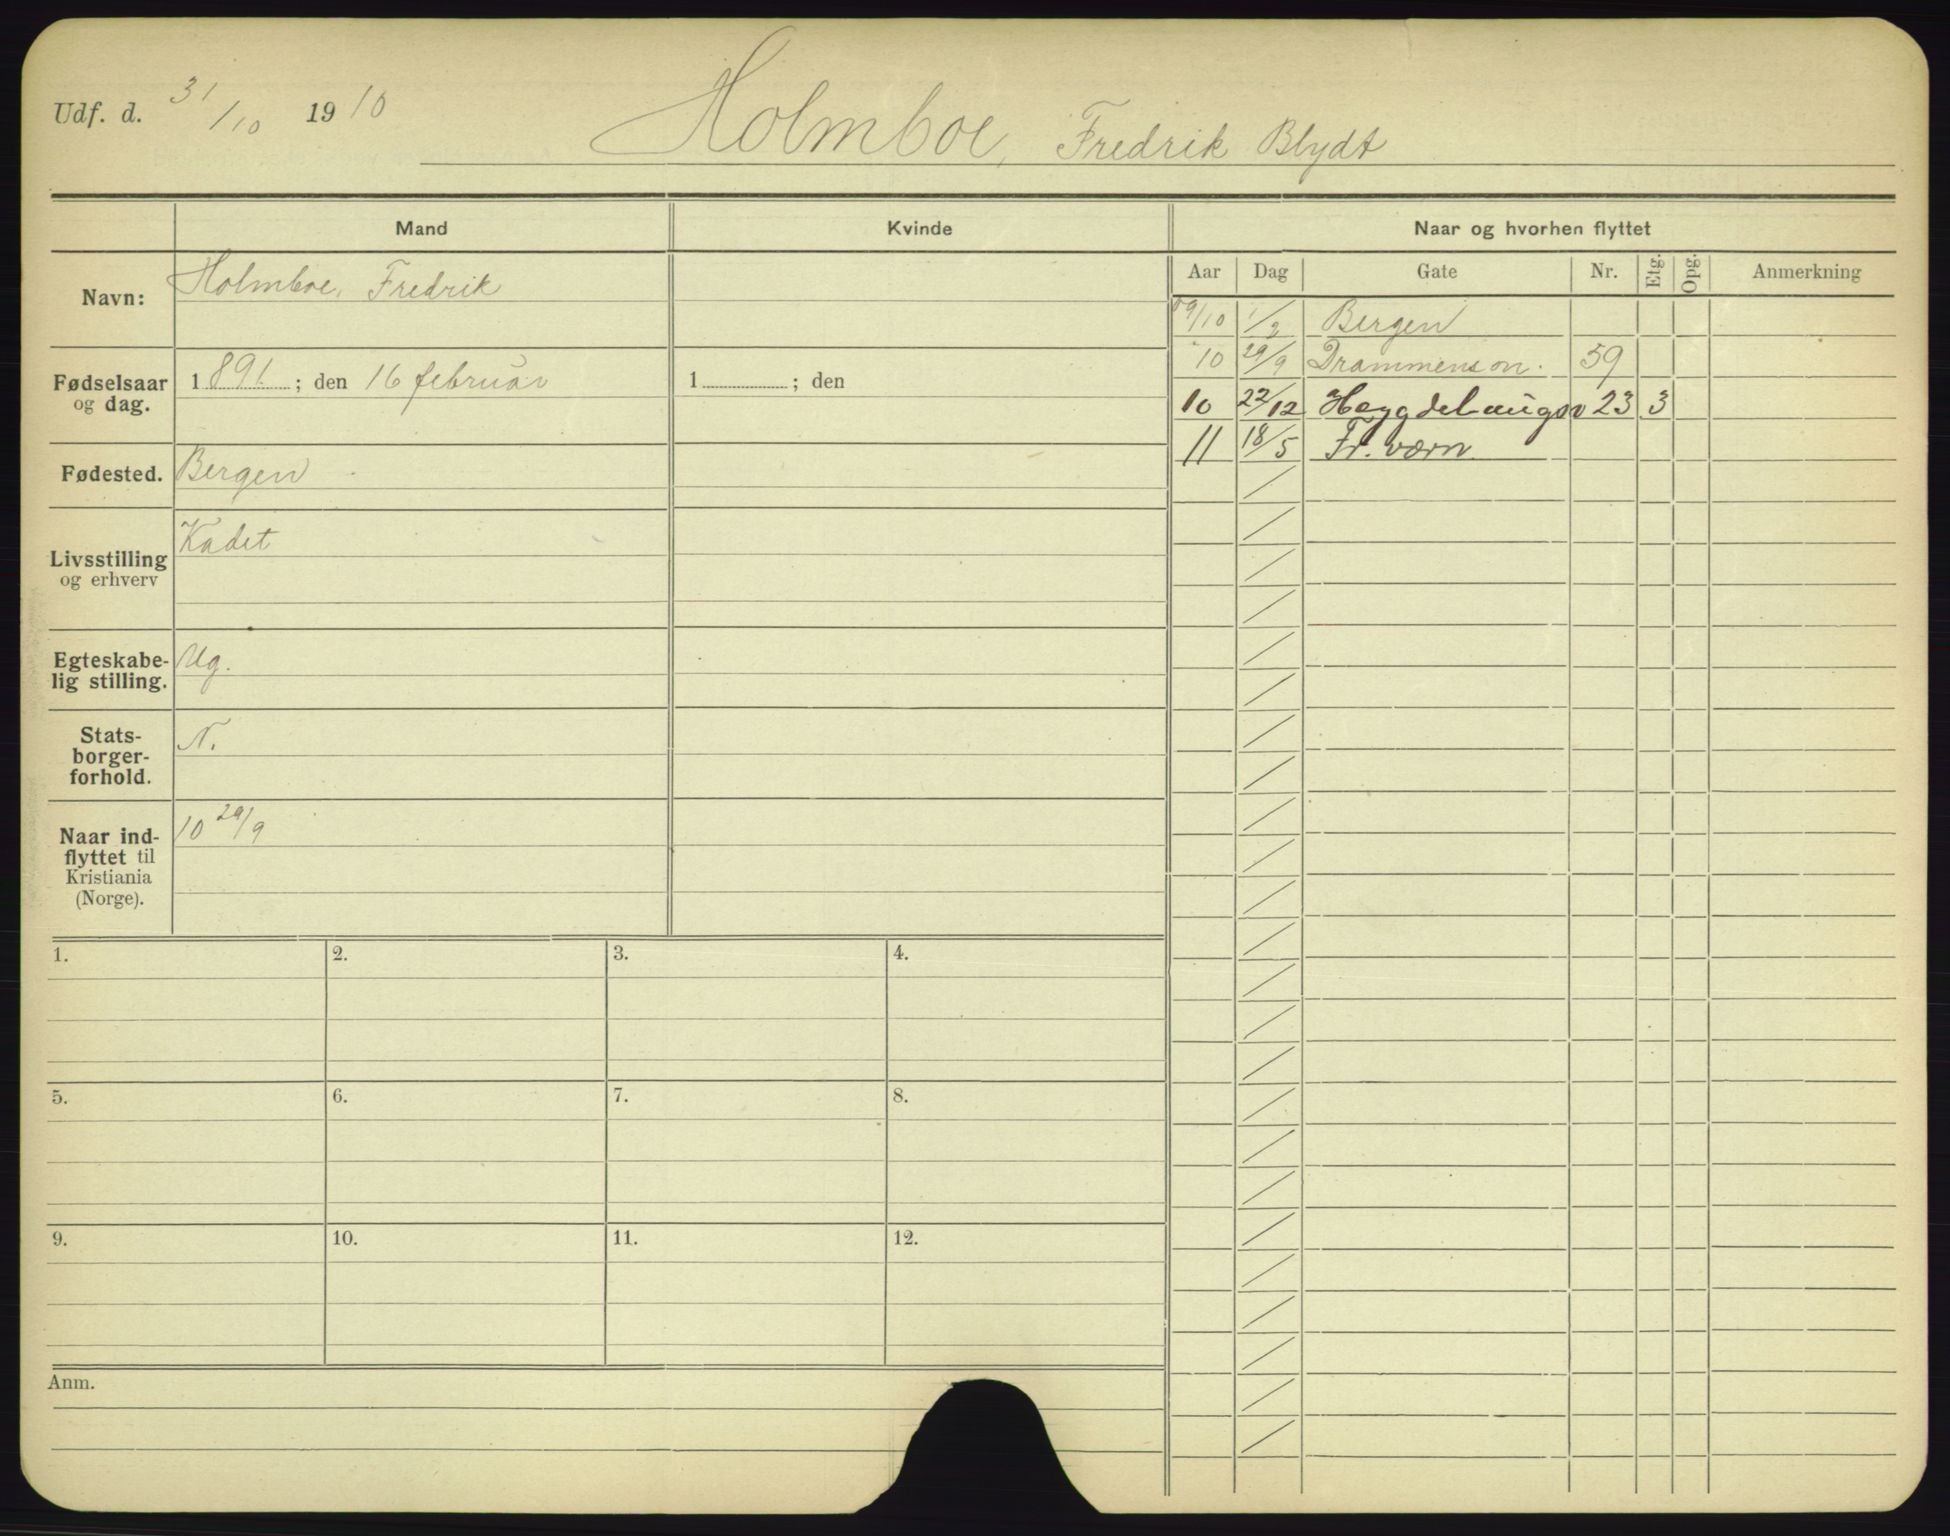 Udf. d. 31/10 1910
Holmboe, Fredrik Blydt
Mand
Kvinde
Naar og hvorhen flyttet
Aar Dag Gate Nr. Etg. Opg. Anmerkning
Navn: Holmboe, Fredrik
Fødselsaar og dag. 1891 ; den 16 februar
1 ; den
Fødested. Bergen
Livsstilling og erhverv Kadet
Egteskabe-
lig stilling. Ug.
Stats-
borger-
forhold. N.
Naar ind-
flyttet til
Kristiania
(Norge). 10 29/9
09/10 1/2 Bergen
10 29/9 Drammensvn. 59
10 22/12 Hægdehaugsv 23 3
11 18/5 Fr. værn
1. 2. 3. 4.
5. 6. 7. 8.
9. 10. 11. 12.
Anm.